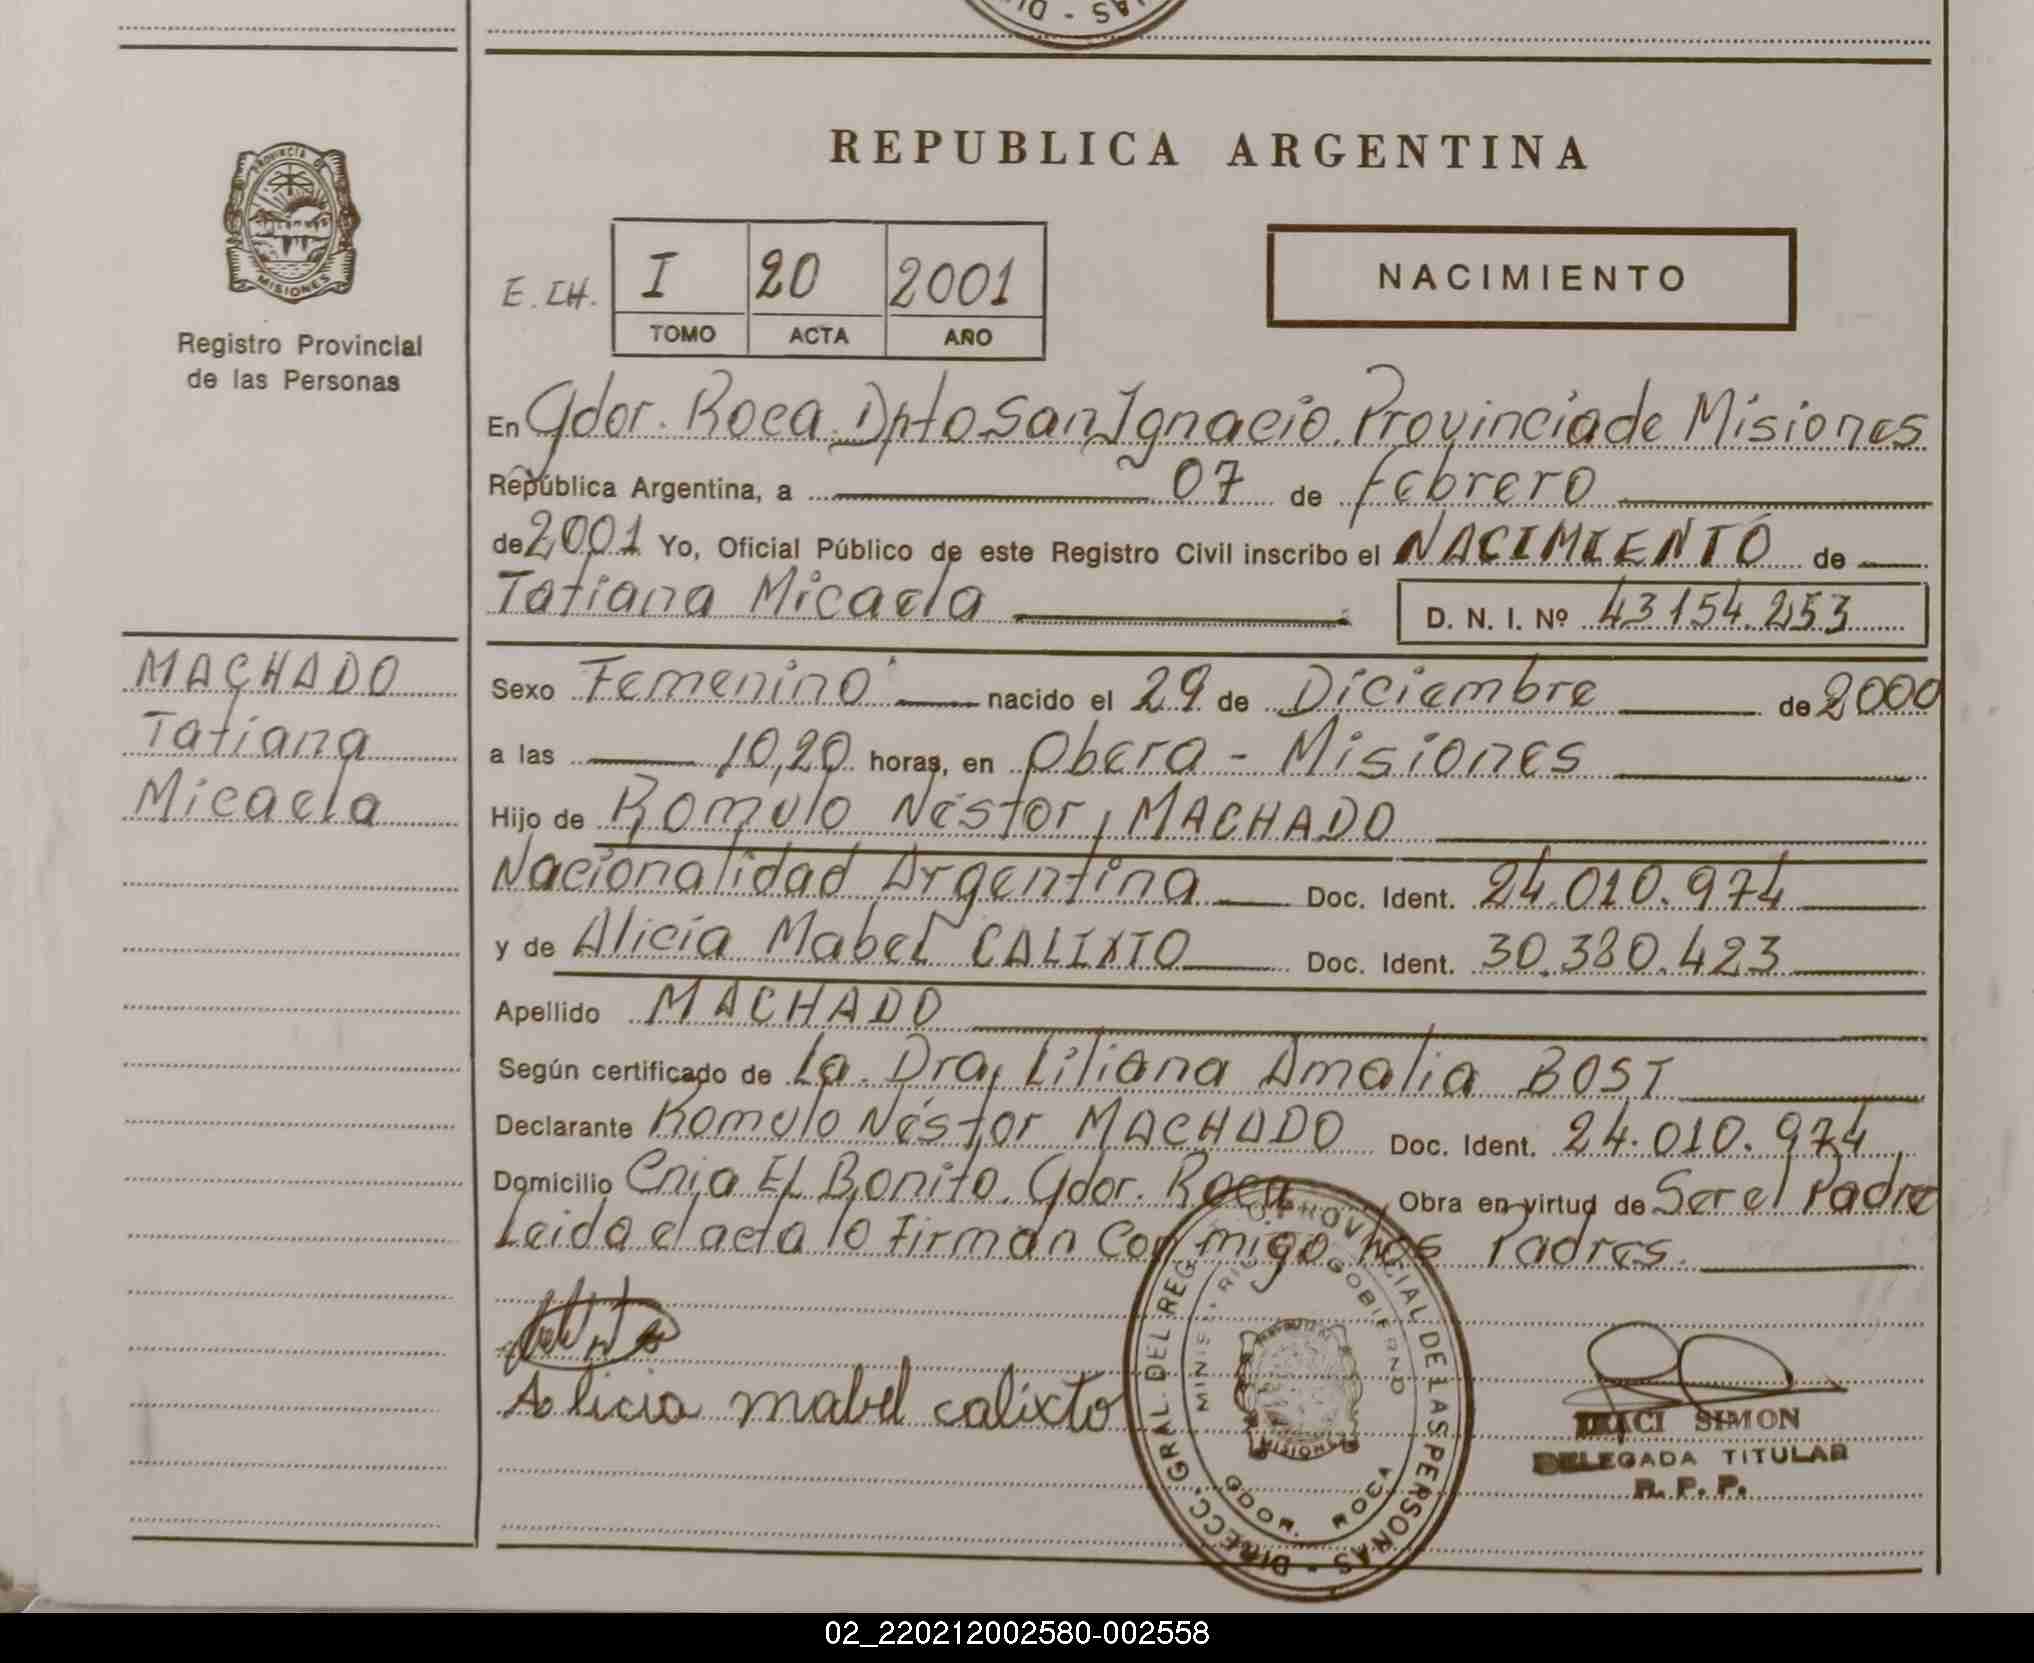 REPUBLICA ARGENTINA
PROVINCIA DE
MISIONES
Registro Provincial
de las Personas
E. CH.
I 20 2001
TOMO ACTA AÑO
NACIMIENTO
En Gdor. Roca Dpto San Ignacio. Provincia de Misiones
República Argentina, a 07 de Febrero
de 2001 Yo, Oficial Público de este Registro Civil inscribo el NACIMIENTO de
Tatiana Micaela D. N. I. Nº 43154.253
MACHADO
Tatiana
Micaela
Sexo Femenino nacido el 29 de Diciembre de 2000
a las 10,20 horas, en Obera - Misiones
Hijo de Romulo Néstor, MACHADO
Nacionalidad Argentina Doc. Ident. 24.010.974
y de Alicia Mabel CALIXTO Doc. Ident. 30.380.423
Apellido MACHADO
Según certificado de La Dra, Liliana Amalia BOST
Declarante Romulo Néstor MACHADO Doc. Ident. 24.010.974
Domicilio Cnia El Bonito. Gdor. Roca Obra en virtud de Ser el Padre
Leida el acta lo Firman Conmigo los Padres.
Alicia mabel calixto
DIRECC. GRAL. DEL REG PROVINCIAL DE LAS PERSONAS
GOBIERNO
MISIONES
GDOR. ROCA
IRACI SIMON
DELEGADA TITULAR
R. P. P.
02_220212002580-002558